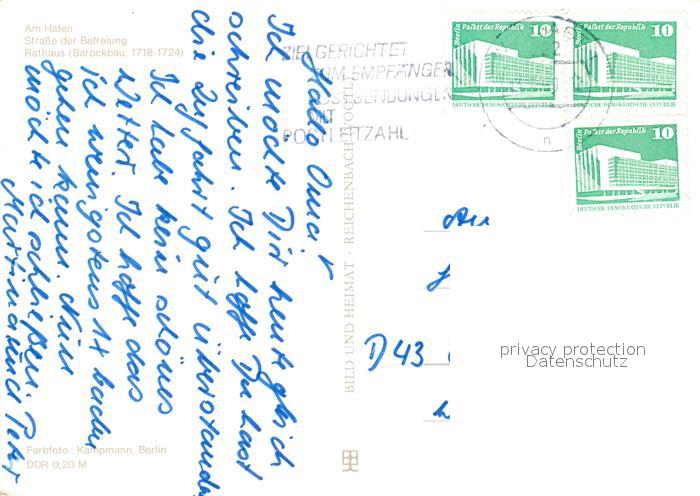 Am Hafen
Straße der Befreiung
Rathaus (Barockbau, 1718-1724)
Hallo Oma!
Ich möchte Dir heute gleich
schreiben. Ich hoffe Du hast
die Zufahrt gut überstanden
Ich habe kein schönes
Wetter. Ich hoffe das
ich wenigstens 1x baden
gehen kann. Nun
möchte ich schließen
Martina und Peter
Farbfoto: Kampmann, Berlin
DDR 0,20 M
BILD UND HEIMAT · REICHENBACH (VOGTL
ZIELGERICHTET
ZUM EMPFÄNGER
SENDUNGEN
MIT
POSTLEITZAHL
Berlin Palast der Republik 10
DEUTSCHE DEMOKRATISCHE REPUBLIK
Berlin Palast der Republik 10
DEUTSCHE DEMOKRATISCHE REPUBLIK
Berlin Palast der Republik 10
DEUTSCHE DEMOKRATISCHE REPUBLIK
An
D 43
privacy protection
Datenschutz